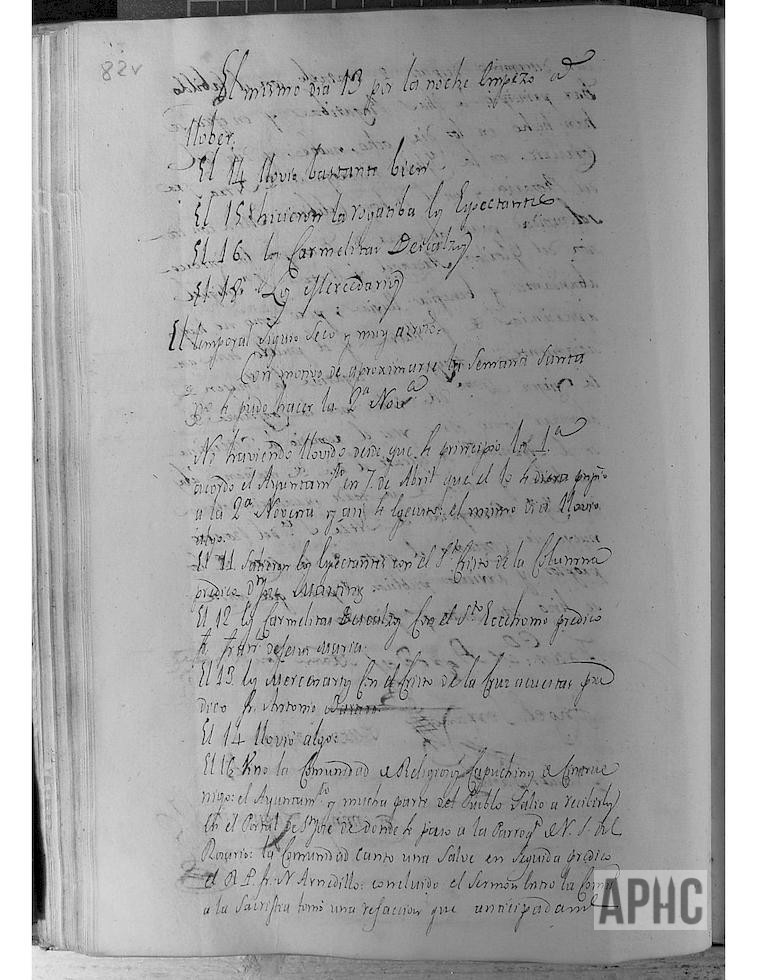 82v
El mismo dia 13 por la noche empezo a
llober.
El 14 llovio bastante bien
El 15 hicieron la rogatiba los Expectantes
El 16 los Carmelitas Descalzos
El 18 Los Mercedarios
El temporal siguio seco y muy ayroso.
Con motivo de aproximarse la Semana Santa
no se pudo hacer la 2ª Novª
Ni haviendo llovido desde que se principio la 1.ª
acordó el Ayuntamto en 7 de Abril que el 10 se diera
a la 2ª Novena y asi se egecutó: el mismo dia llovio
algo.
El 11 salieron los Expectantes con el Sto Cristo de la Columna
predico Martinez
El 12 los Carmelitas Descalzos con el Sto Eccehomo predico
fr. de Jesus Maria.
El 13 los Mercenarios con el Cristo de la Cruz acuestas pre
dico fr. Antonio
El 14 llovio algo.
El 16 vino la Comunidad de Religiosos Capuchinos de
el Ayuntamto y mucha parte del Pueblo salio a recibirlos
en el Portal de de donde se paso a la Parroql de N. S. del
Rosario: la Comunidad canto una Salve en seguida predico
el R. P. fr. N Arnedillo: concluido el Sermon entro la Comd
a la Sacristia tomó una refaccion que anticipadamte
APHC